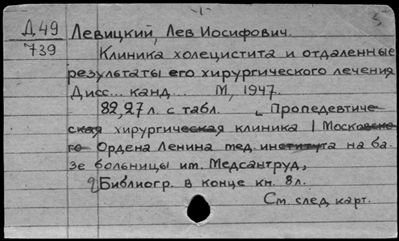 -1-
Д.49 Левицкий, Лев Иосифович.
739 Клиника холецистита и отдаленные
результаты его хирургического лечения
Дисс... канд... М, 1947.
82,27 л. с табл. Пропедевтиче-
ская хирургическая клиника I Московско-
го Ордена Ленина мед. института на ба-
зе больницы им. Медсантруд,
Библиогр. в конце кн. 8л.
См. след. карт.